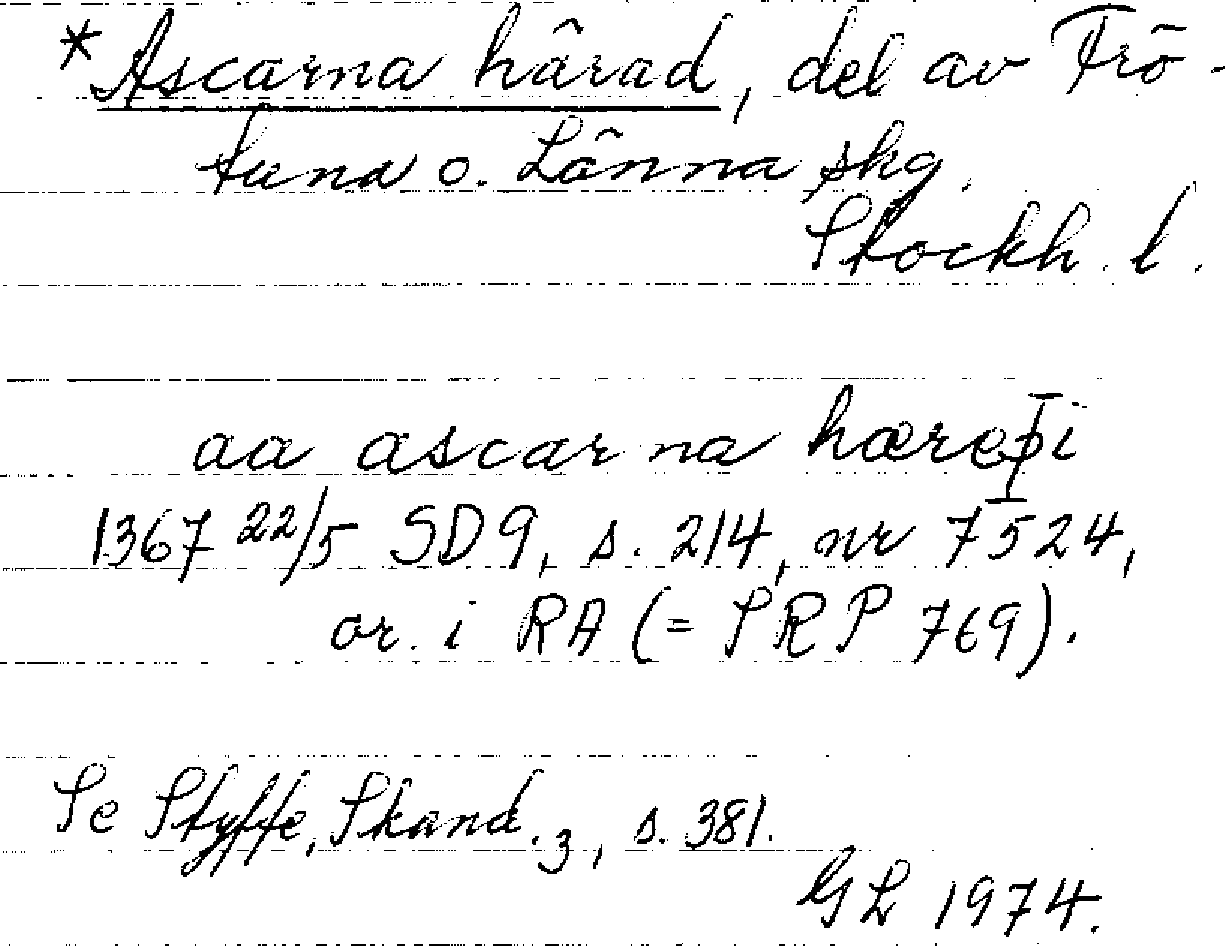 *Ascarna härad, del av Frö-
tuna o. Länna skg.
Stockh. l.
aa ascarna hæreþi
1367 22/5 SD 9, s. 214, nr 7524,
or. i RA (= SRP 769).
Se Styffe, Skand. 3, s. 381.
GL 1974.